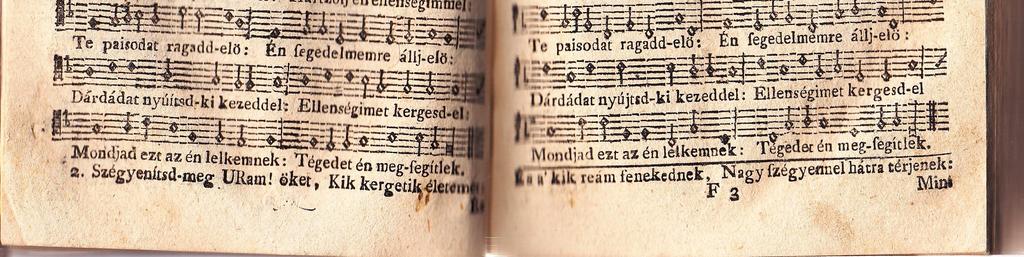 én ellenségimmel:
Te paisodat ragadd-elö: Én ſegedelmemre állj-elö:
Dárdádat nyúitsd-ki kezeddel: Ellenségimet kergesd-el:
Mondjad ezt az én lelkemnek: Tégedet én meg-ſegitlek.
2. Szégyenitsd-meg URam! öket, Kik kergetik életemet
Te paisodat ragadd-elö: Én ſegedelmemre állj-elö:
Dárdádat nyújtsd-ki kezeddel: Ellenségimet kergesd-el
Mondjad ezt az én lelkemnek: Tégedet én meg-ſegitlek.
kik reám ſenekednek, Nagy ſzégyennel hátra térjenek:
F 3
Mint